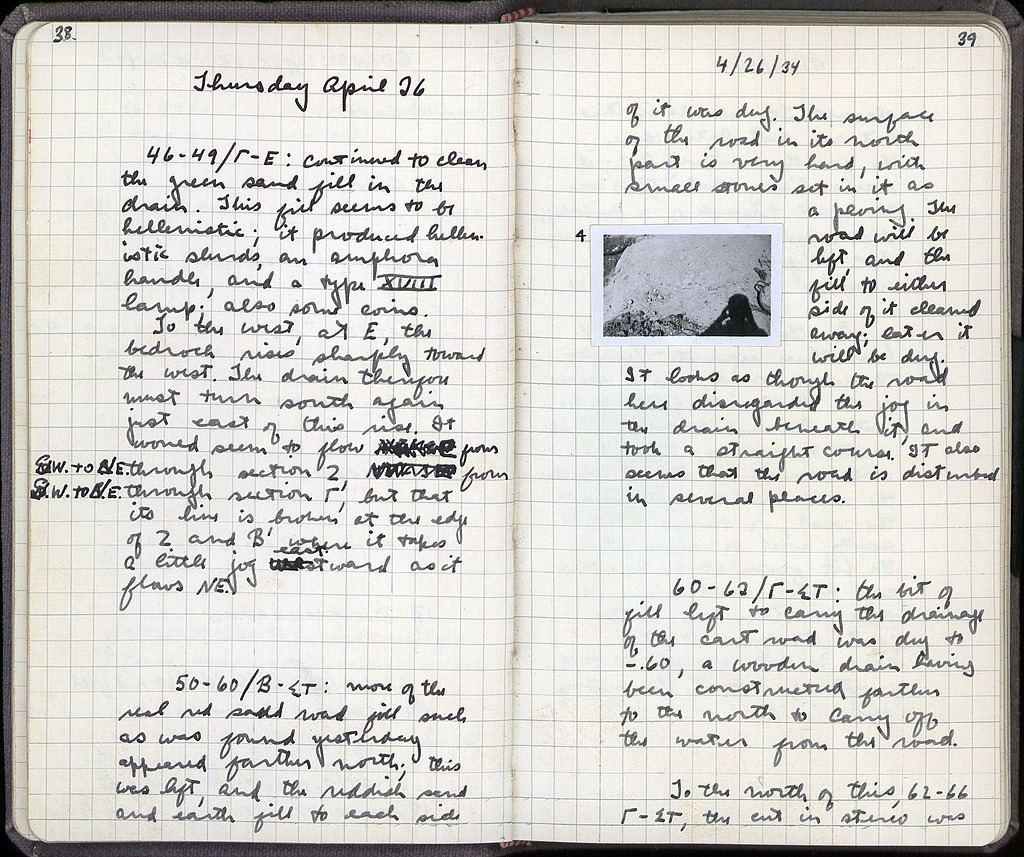 38.
Thursday April 26
46-49/Γ-E: continued to clean
the green sand fill in the
drain. This fill seems to be
hellenistic; it produced hellen-
istic sherds, an amphora
handle, and a type XVIII
lamp; also some coins.
To the west, at E, the
bedrock rises sharply toward
the west. The drain therefore
must turn south again
just east of this rise. It
would seem to flow from
S.W. to N/E. through section Z, from
S.W. to N/E. through section Γ, but that
its line is broken at the edge
of Z and B, where it takes
a little jog eastward as it
flows NE.
50-60/B-ΣT: more of the
real red sand road fill such
as was found yesterday
appeared farther north; this
was left, and the reddish sand
and earth fill to each side
39
4/26/34
of it was dug. The surface
of the road in its north
part is very hard, with
small stones set in it as
a paving. The
road will be
left, and the
fill to either
side of it cleaned
away; later it
will be dug.
4
It looks as though the road
here disregarded the jog in
the drain beneath it, and
took a straight course. It also
seems that the road is disturbed
in several places.
60-62/Γ-ΣT: the bit of
fill left to carry the drainage
of the cart road was dug to
-.60, a wooden drain having
been constructed farther
to the north to carry off
the water from the road.
To the north of this, 62-66
Γ-ΣT, the cut in stereo was